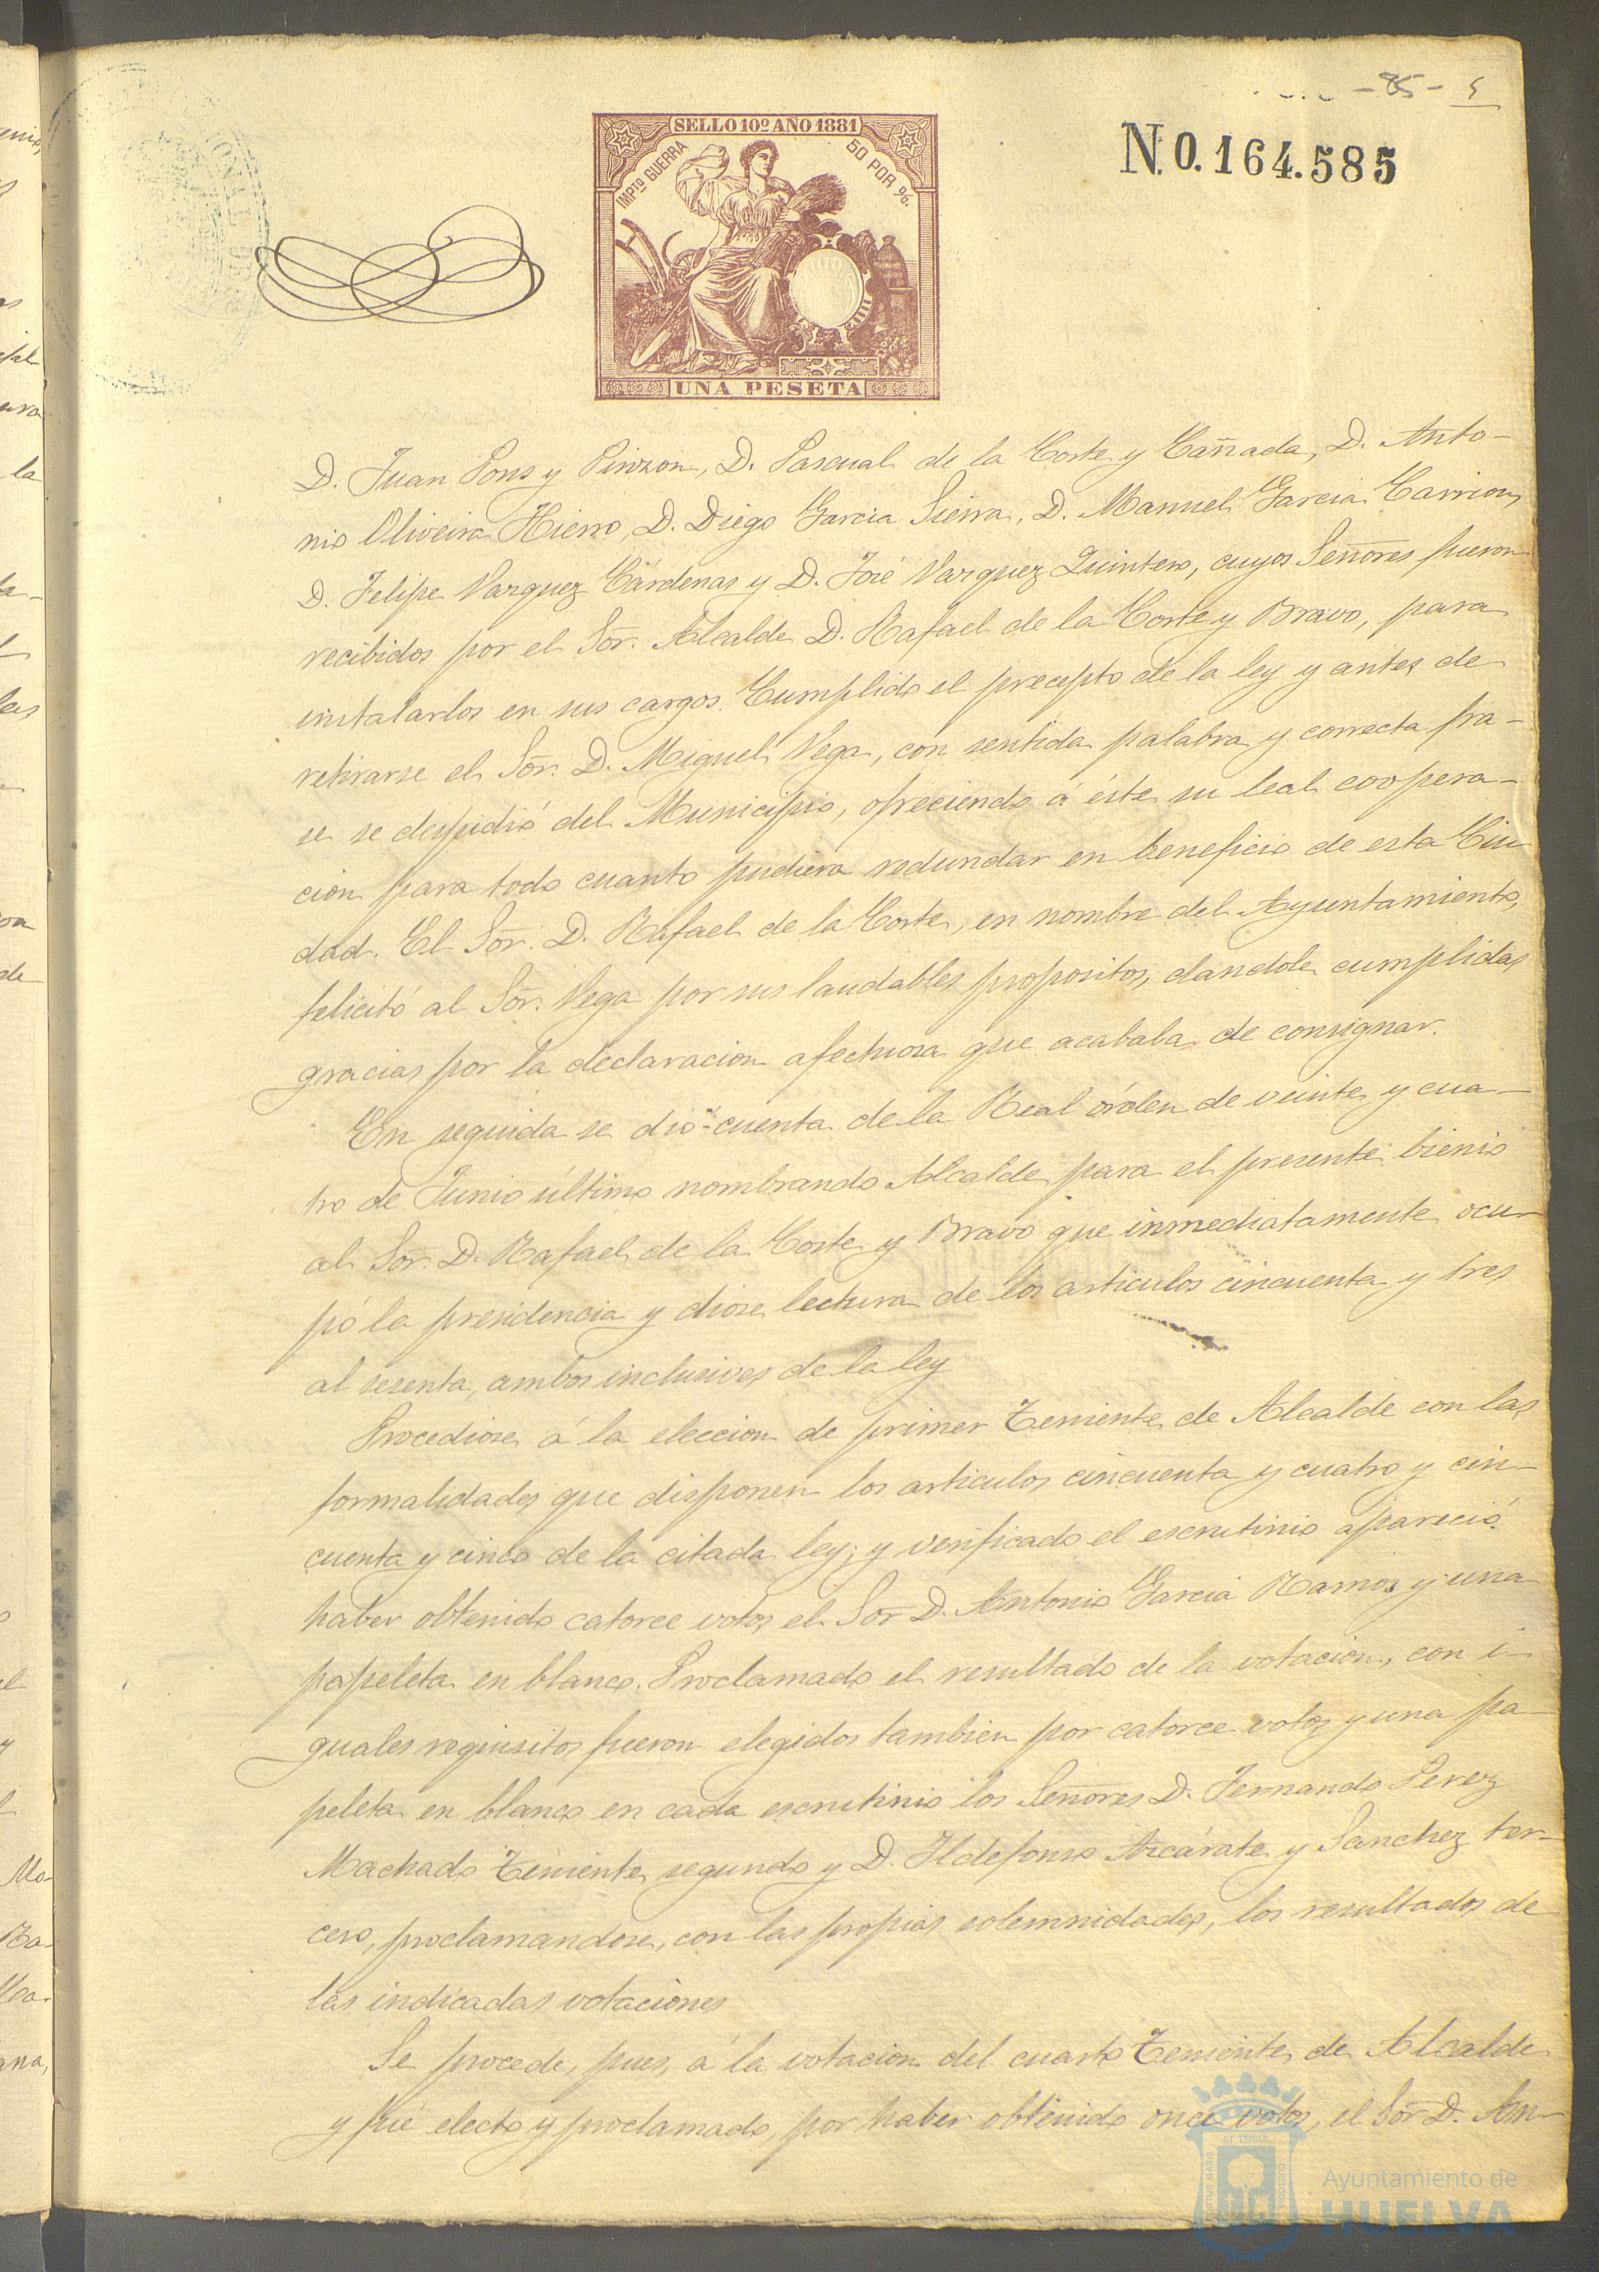 - 85 - 5
SELLO 10º AÑO 1881
IMPTO GUERRA
50 POR %.
UNA PESETA
N.0.164.585
D. Juan Pons y Pinzon, D. Pascual de la Corte y Cañada, D. Anto-
nio Oliveira Hierro, D. Diego Garcia Sierra, D. Manuel Garcia Carrion,
D. Felipe Vazquez Cárdenas y D. José Vazquez Quintero, cuyos Señores fueron
recibidos por el Sor. Alcalde D. Rafael de la Corte y Bravo, para
instalarlos en sus cargos. Cumplido el precepto de la ley y antes de
retirarse el Sor. D. Miguel Vega, con sentida palabra y correcta fra-
se se despidió del Municipio, ofreciendo á éste su leal coopera-
cion para todo cuanto pudiera redundar en beneficio de esta Ciu
dad. El Sor. D. Rafael de la Corte, en nombre del Ayuntamiento,
felicitó al Sor. Vega por sus laudables propositos, dandole cumplidas
gracias por la declaracion afectuosa que acababa de consignar.
En seguida se dió cuenta de la Real órden de veinte y cua-
tro de Junio último nombrando Alcalde para el presente bienio
al Sor. D. Rafael de la Corte y Bravo que inmediatamente ocu-
pó la presidencia y diose lectura de los articulos cincuenta y tres
al sesenta, ambos inclusives de la ley
Procediose á la eleccion de primer Teniente de Alcalde con las
formalidades que disponen los articulos cincuenta y cuatro y cin-
cuenta y cinco de la citada ley; y verificado el escrutinio apareció
haber obtenido catorce votos el Sor D. Antonio Garcia Ramos y una
papeleta en blanco. Proclamado el resultado de la votacion, con i-
guales requisitos fueron elegidos tambien por catorce votos y una pa-
peleta en blanco en cada escrutinio los Señores D. Fernando Perez
Machado Teniente segundo y D. Ildefonso Azcárate y Sanchez ter-
cero, proclamandose, con las propias solemnidades, los resultados de
las indicadas votaciones
Se procede, pues, á la votacion del cuarto Teniente de Alcalde
y fué electo y proclamado, por haber obtenido once votos, el Sor D. An-
Ayuntamiento de
HUELVA